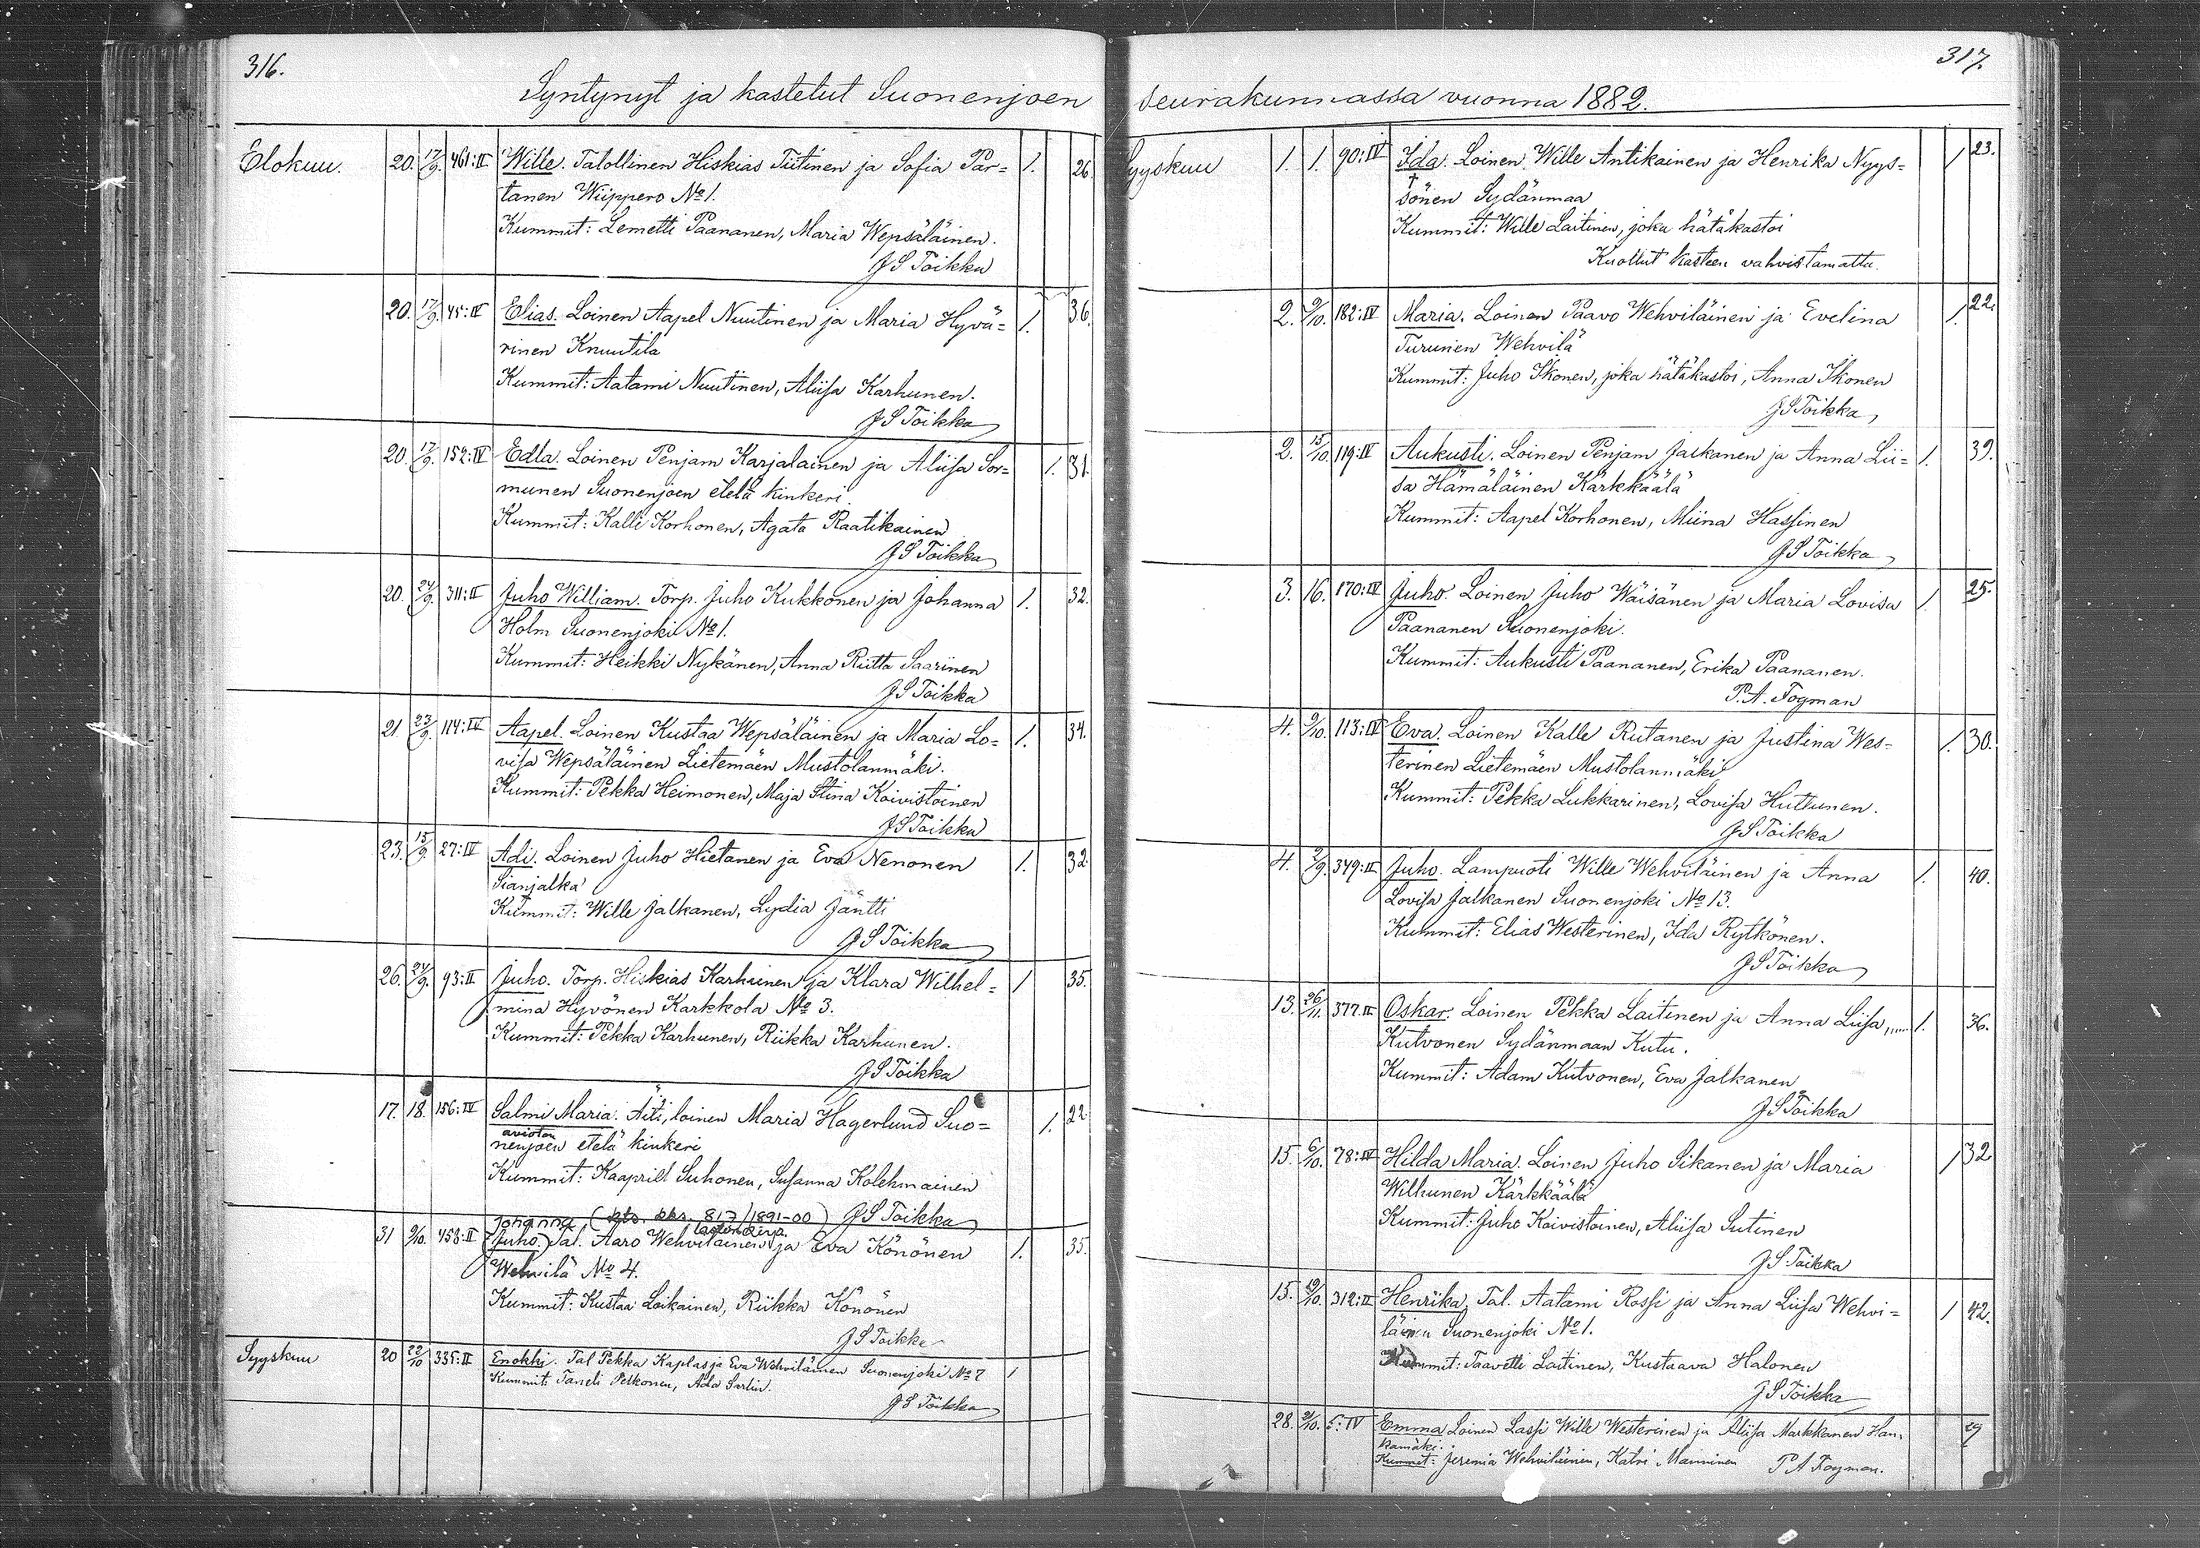 316.
Syntynyt ja kastetut Suonenjoen
Elokuu. 20. 17/9. 461:II Wille. Talollinen Hiskias Tiitinen ja Sofia Par= 1. 26.
tanen Wiippero No 1.
Kummit: Lemetti Paananen, Maria Wepsäläinen.
J S Toikka
20. 17/9. 45:IV Elias. Loinen Aapel Nuutinen ja Maria Hyvä= 1. 36.
rinen Knuutila
Kummit: Aatami Nuutinen, Aliisa Karhunen.
J S Toikka
20. 17/9. 152:IV Edla. Loinen Penjam Karjalainen ja Aliisa Sor= 1. 31.
munen Suonenjoen etelä kinkeri.
Kummit: Kalli Korhonen, Agata Raatikainen
J S Toikka
20. 24/9. 311:II Juho William. Torp. Juho Kukkonen ja Johanna 1. 32.
Holm Suonenjoki No 1.
Kummit: Heikki Nykänen, Anna Riitta Saarinen
J S Toikka
21. 23/9. 114:IV Aapel. Loinen Kustaa Wepsäläinen ja Maria Lo= 1. 34.
visa Wepsäläinen Lietemäen Mustolanmäki.
Kummit: Pekka Heimonen, Maja Stina Koivistoinen
J S Toikka
23. 15/9. 27:IV Adi. Loinen Juho Hietanen ja Eva Nenonen 1. 32.
Sianjalka
Kummit: Wille Jalkanen, Lydia Jäntti
J S Toikka
26. 24/9. 93:II Juho. Torp. Hiskias Karhunen ja Klara Wilhel= 1 35.
mina Hyvönen Karkkola No 3.
Kummit: Pekka Karhunen, Riikka Karhunen.
J S Toikka
17. 18. 156:IV Salmi Maria. Äiti, loinen Maria Hagerlund Suo= 1. 22.
avioton
nenjoen etelä kinkeri
Kummit: Kaaprill Suhonen, Susanna Kolehmainen
J S Toikka
Johanna (kts. kkr. 817/1891-00)
lastenkirja
31 9/10. 458:II (Juho.) Tal. Aaro Wehviläinen ja Eva Könönen 1. 35.
Wehvilä No 4.
Kummit: Kustaa Loikainen, Riikka Könönen
J S Toikka
Syyskuu 20 22/10 335:II Enokki. Tal Pekka Kaplas ja Eva Wehviläinen Suonenjoki No 7 1
Kummit: Taneli Pelkonen, Ada Sarlin.
J S Toikka
317.
seurakunnassa vuonna 1882.
Syyskuu 1. 1. 90:IV Ida. Loinen Wille Antikainen ja Henrika Nyys= 1 23.
† sönen Sydänmaa
Kummit: Wille Laitinen, joka hätäkastoi
Kuollut kasteen vahvistamatta.
2. 9/10. 182:IV Maria. Loinen Paavo Wehviläinen ja Evelina 1. 22.
Turunen Wehvilä
Kummit: Juho Ikonen, joka hätäkastoi, Anna Ikonen
J S Toikka
2. 15/10. 119:IV Aukusti. Loinen Penjam Jalkanen ja Anna Lii= 1. 39.
sa Hämäläinen Kärkkäälä
Kummit: Aapel Korhonen, Miina Hassinen
J S Toikka
3. 16. 170:IV Juho. Loinen Juho Wäisänen ja Maria Lovisa 1. 25.
Paananen Suonenjoki.
Kummit: Aukusti Paananen, Erika Paananen.
P. A. Fogman
4. 9/10. 113:IV Eva. Loinen Kalle Rutanen ja Justina Wes= 1. 30.
terinen Lietemäen Mustolanmäki
Kummit: Pekka Lukkarinen, Lovisa Huttunen.
J S Toikka
4. /9. 349:II Juho. Lampuoti Wille Wehviläinen ja Anna 1. 40.
Lovisa Jalkanen Suonenjoki No 13.
Kummit: Elias Westerinen, Ida Rytkönen.
J S Toikka
13. 26/11. 377.II Oskar. Loinen Pekka Laitinen ja Anna Liisa, 1. 36.
Kutvonen Sydänmaan Kutu.
Kummit: Adam Kutvonen, Eva Jalkanen
J S Toikka
15. 6/10. 78:IV Hilda Maria. Loinen Juho Sikanen ja Maria 1 32
Wilhunen Kärkkäälä
Kummit: Juho Koivistoinen, Aliisa Sutinen
J S Toikka
15. /10. 312:II Henrika. Tal. Aatami Rossi ja Anna Liisa Wehvi= 1 42.
läinen Suonenjoki No 1.
Kummit: Taavetti Laitinen, Kustaava Halonen
J S Toikka
28. /10. 5:IV Emma Loinen Lassi Wille Westerinen ja Aliisa Markkanen Han= 29
kamäki.
Kummit: Jeremia Wehviläinen, Katri Manninen P A Fogman.